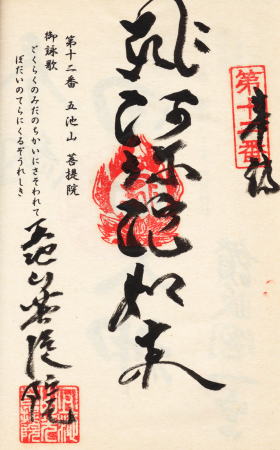 奉拝
第十二番
阿弥陀如来
五池山菩提院
第十二番 五池山 菩提院
御詠歌
ごくらくのみだのちかいにさそわれて
ぼだいのてらにくるぞうれしき